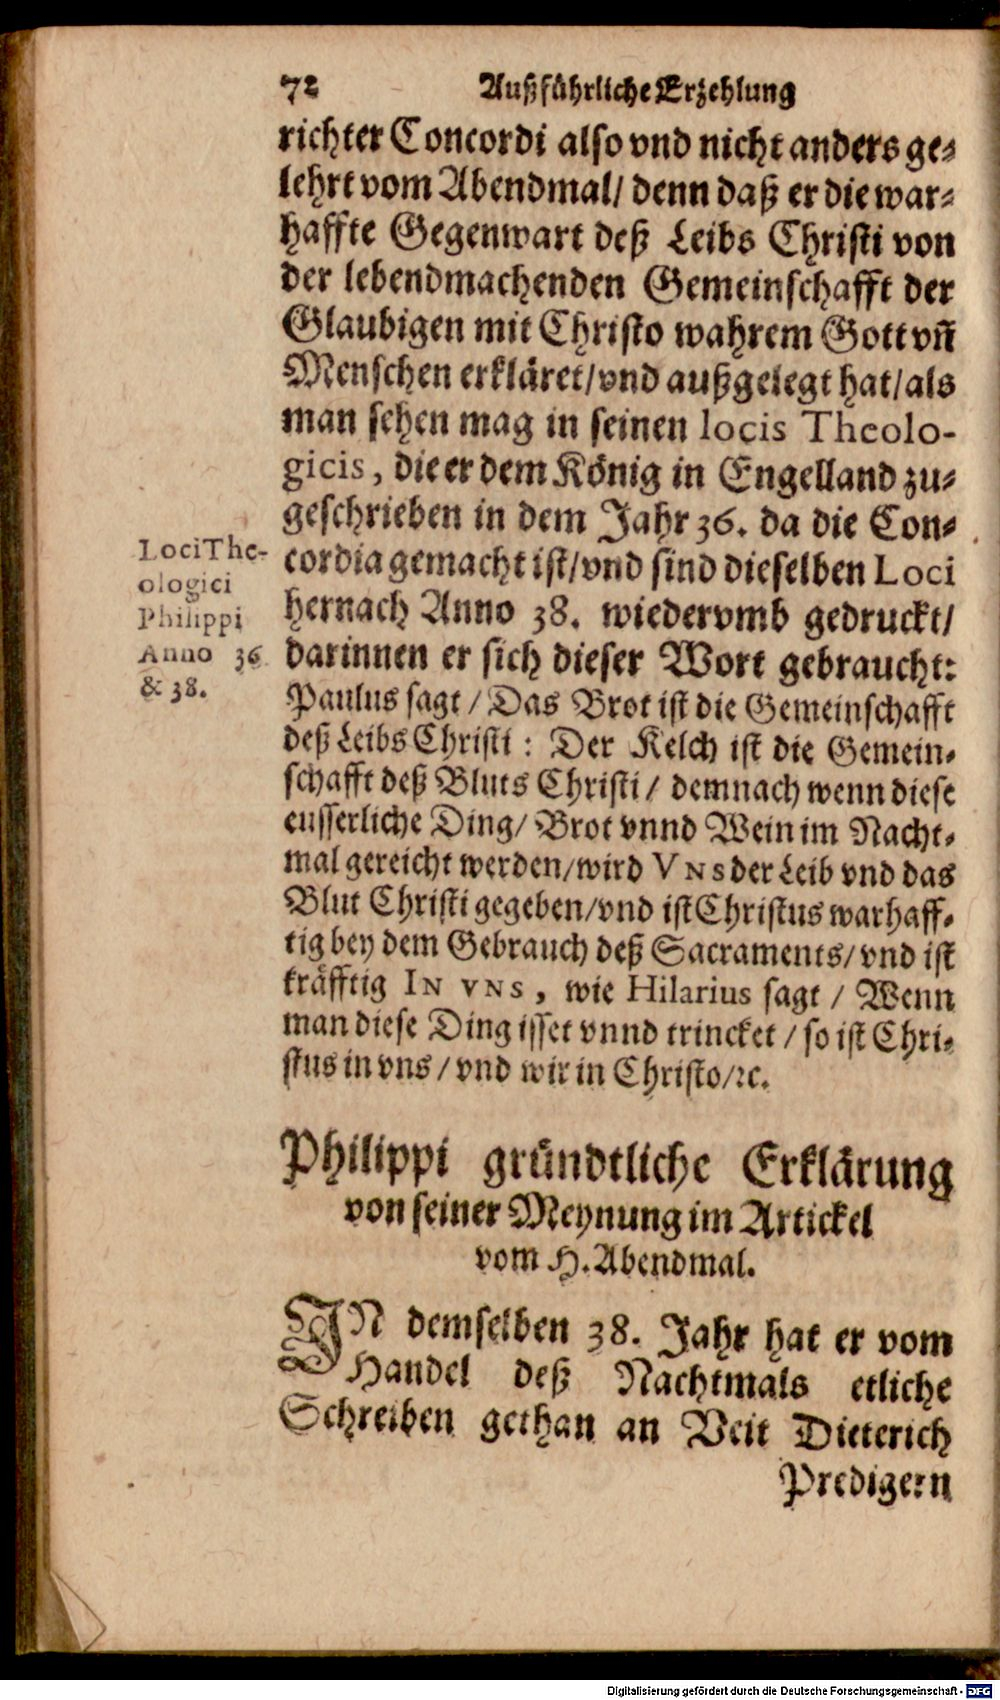 72 Außführliche Erzehlung
richter Concordi also vnd nicht anders ge-
lehrt vom Abendmal/ denn daß er die war-
haffte Gegenwart deß Leibs Christi von
der lebendmachenden Gemeinschafft der
Glaubigen mit Christo wahrem Gott vñ
Menschen erkläret/vnd außgelegt hat/als
man sehen mag in seinen locis Theolo-
gicis, die er dem König in Engelland zu-
geschrieben in dem Jahr 36. da die Con-
cordia gemacht ist/vnd sind dieselben Loci
hernach Anno 38. wiedervmb gedruckt/
darinnen er sich dieser Wort gebraucht:
Paulus sagt / Das Brot ist die Gemeinschafft
deß Leibs Christi : Der Kelch ist die Gemein-
schafft deß Bluts Christi / demnach wenn diese
eusserliche Ding/ Brot vnnd Wein im Nacht-
mal gereicht werden/wird VNS der Leib vnd das
Blut Christi gegeben/vnd ist Christus warhaff-
tig bey dem Gebrauch deß Sacraments/ vnd ist
kräfftig IN VNS, wie Hilarius sagt / Wenn
man diese Ding isset vnnd trincket / so ist Chri-
stus in vns / vnd wir in Christo/ꝛc.
Loci The-
ologici
Philippi
Anno 36
& 38.
Philippi gründtliche Erklärung
von seiner Meynung im Artickel
vom H. Abendmal.
IN demselben 38. Jahr hat er vom
Handel deß Nachtmals etliche
Schreiben gethan an Veit Dieterich
Predigern
Digitalisierung gefördert durch die Deutsche Forschungsgemeinschaft - DFG